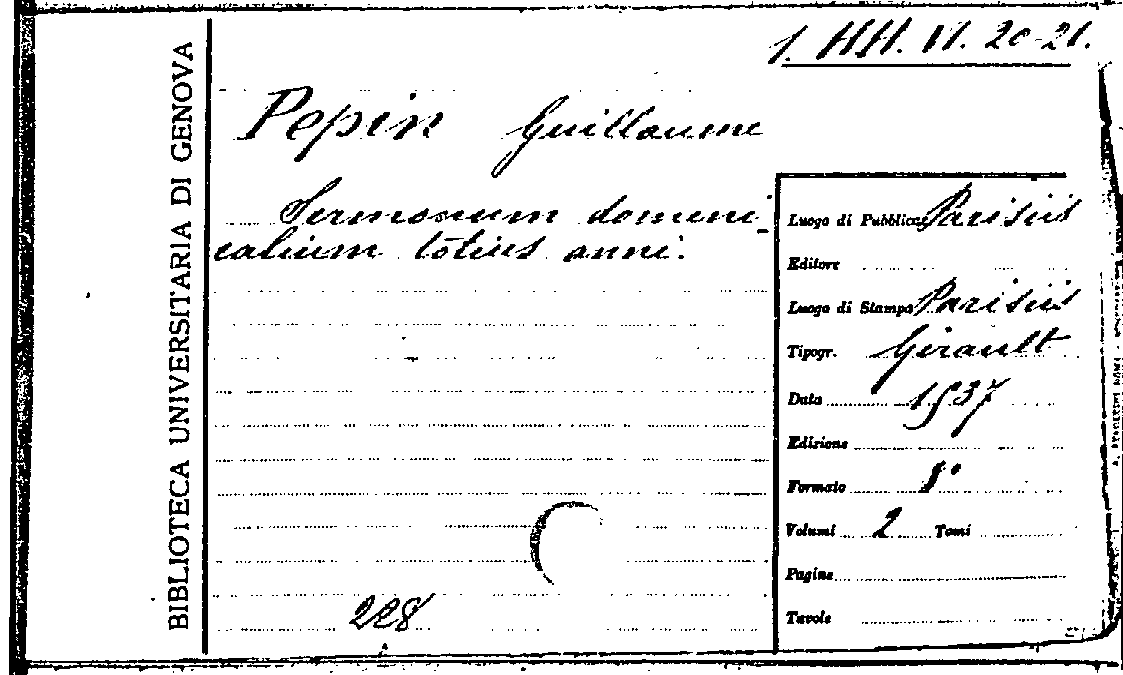 1. HH. VI. 20-21.
BIBLIOTECA UNIVERSITARIA DI GENOVA
Pepin Guillaume
Sermonum domeni-
calium totius anni.
Luogo di Pubblicaz. Parisiis
Editore
Luogo di Stampa Parisiis
Tipogr. Girault
Data 1537
Edizione
Formato 8°
Volumi 2 Tomi
Pagine
Tavole
228